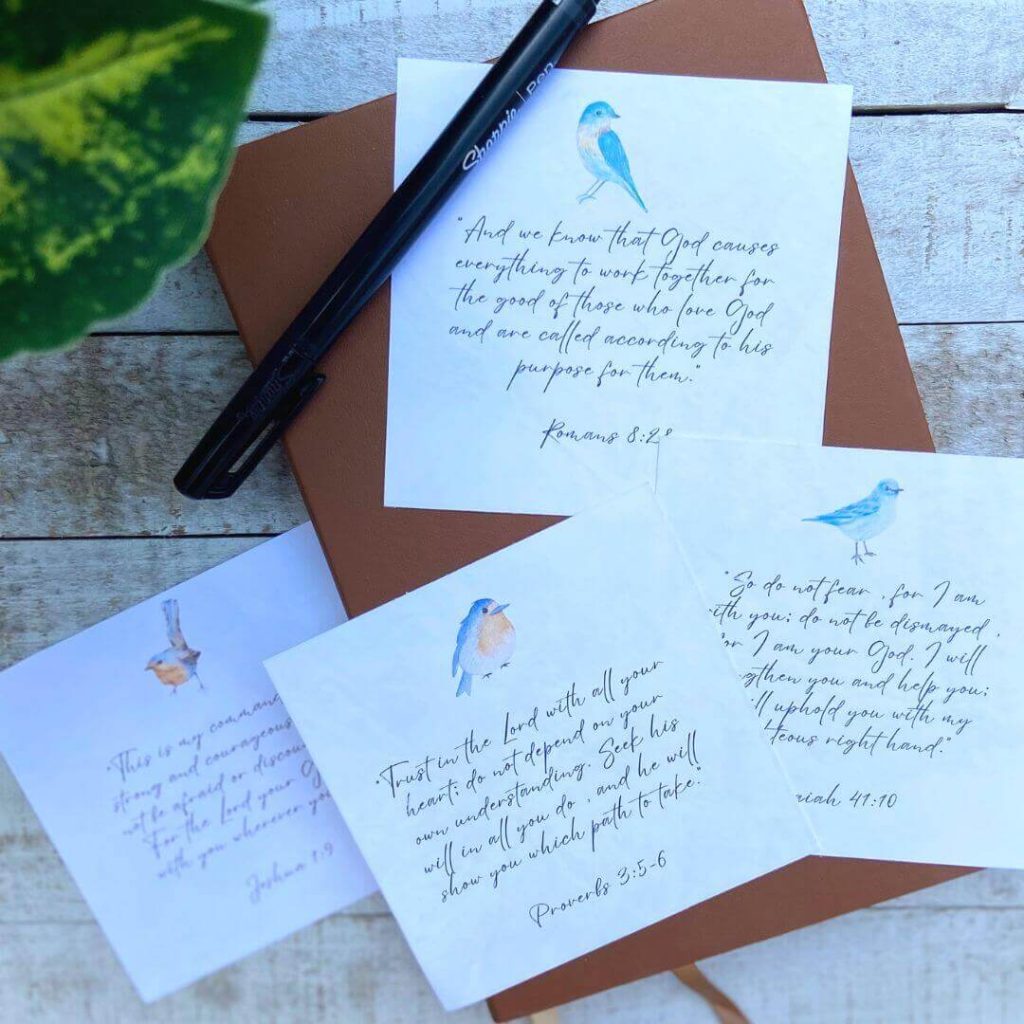 Sharpie | Pen
"And we know that God causes
everything to work together for
the good of those who love God
and are called according to his
purpose for them."
Romans 8:28
"So do not fear, for I am
ith you; do not be dismayed,
or I am your God. I will
gthen you and help you;
ill uphold you with my
teous right hand."
aiah 41:10
"Trust in the Lord with all your
heart; do not depend on your
own understanding. Seek his
will in all you do, and he will
show you which path to take."
Proverbs 3:5-6
"This is my comman
strong and courageous
not be afraid or discou
For the Lord your G
with you wherever you
Joshua 1:9